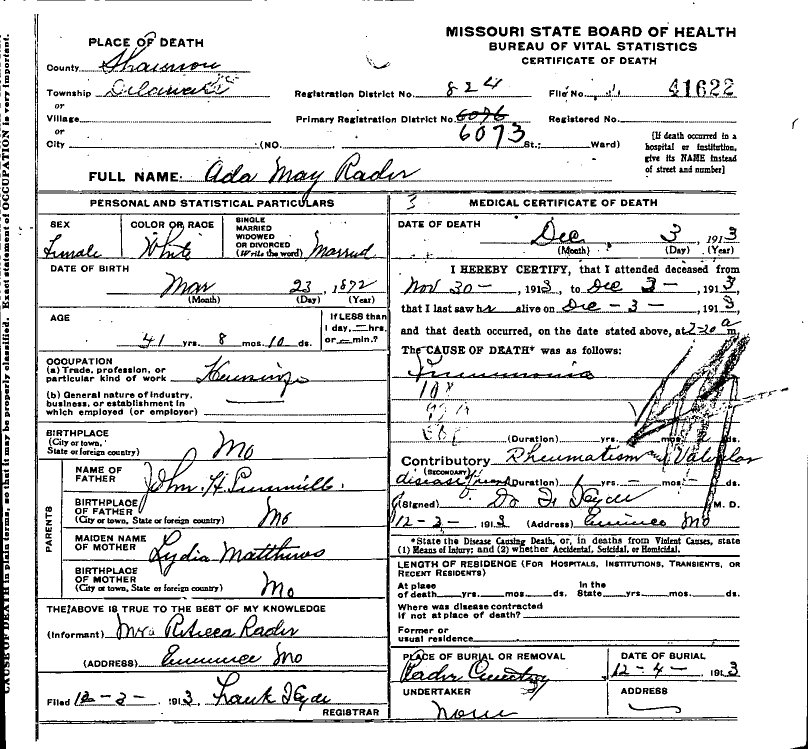 MISSOURI STATE BOARD OF HEALTH
BUREAU OF VITAL STATISTICS
CERTIFICATE OF DEATH
PLACE OF DEATH
County Shannon
Township Delaware
or
Village
or
City (NO. St.; Ward)
Registration District No. 824 File No. 41622
Primary Registration District No. 6096 Registered No.
6073
[If death occurred in a
hospital or institution,
give its NAME instead
of street and number]
FULL NAME: Ada May Rader
PERSONAL AND STATISTICAL PARTICULARS
SEX
Female
COLOR OR RACE
White
SINGLE
MARRIED
WIDOWED
OR DIVORCED
(Write the word) Married
DATE OF BIRTH
Mar 23, 1872
(Month) (Day) (Year)
AGE
41 yrs. 8 mos. 10 ds.
If LESS than
1 day, — hrs.
or — min.?
OCCUPATION
(a) Trade, profession, or
particular kind of work
(b) General nature of industry,
business, or establishment in
which employed (or employer)
BIRTHPLACE
(City or town,
State or foreign country) Mo
PARENTS
NAME OF
FATHER John H.
BIRTHPLACE
OF FATHER
(City or town, State or foreign country) Mo
MAIDEN NAME
OF MOTHER Lydia Matthews
BIRTHPLACE
OF MOTHER
(City or town, State or foreign country) Mo
THE ABOVE IS TRUE TO THE BEST OF MY KNOWLEDGE
(Informant) Mrs Rebecca Rader
(ADDRESS) Eminence Mo
Filed 12-3-, 1913, Frank Hyde
REGISTRAR
3
MEDICAL CERTIFICATE OF DEATH
DATE OF DEATH
Dec 3, 1913
(Month) (Day) (Year)
I HEREBY CERTIFY, that I attended deceased from
Nov 30 —, 1913, to Dec 3 —, 1913,
that I last saw her alive on Dec - 3 -, 1913,
and that death occurred, on the date stated above, at 2-20 a m.
The CAUSE OF DEATH* was as follows:
Pneumonia
108
(Duration) yrs. mos. ds.
Contributory Rheumatism and Valvular
(SECONDARY)
disease (Duration) yrs. — mos. — ds.
(Signed) Hyde M. D.
12-3-, 1913 (Address) Eminence Mo
*State the Disease Causing Death, or, in deaths from Violent Causes, state
(1) Means of Injury; and (2) whether Accidental, Suicidal, or Homicidal.
LENGTH OF RESIDENCE (FOR HOSPITALS, INSTITUTIONS, TRANSIENTS, OR
RECENT RESIDENTS)
At place
of death yrs. mos. ds.
In the
State yrs. mos. ds.
Where was disease contracted
if not at place of death?
Former or
usual residence
PLACE OF BURIAL OR REMOVAL
Rader Cemetery
DATE OF BURIAL
12-4-, 1913
UNDERTAKER
none
ADDRESS
CAUSE OF DEATH in plain terms, so that it may be properly classified. Exact statement of OCCUPATION is very important.